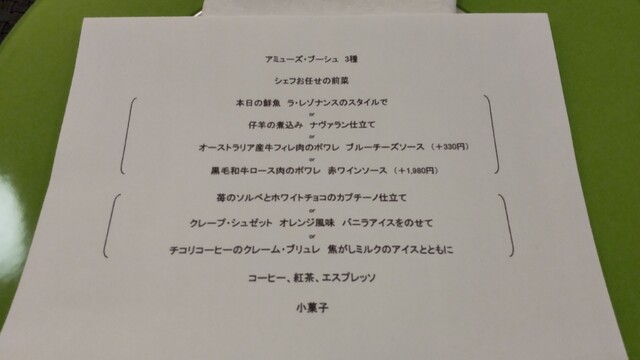 アミューズ・ブーシュ 3種
シェフお任せの前菜
本日の鮮魚 ラ・レゾナンスのスタイルで
or
仔羊の煮込み ナヴァラン仕立て
or
オーストラリア産牛フィレ肉のポワレ ブルーチーズソース (+330円)
or
黒毛和牛ロース肉のポワレ 赤ワインソース (+1,980円)
苺のソルベとホワイトチョコのカプチーノ仕立て
or
クレープ・シュゼット オレンジ風味 バニラアイスをのせて
or
チコリコーヒーのクレーム・ブリュレ 焦がしミルクのアイスとともに
コーヒー、紅茶、エスプレッソ
小菓子